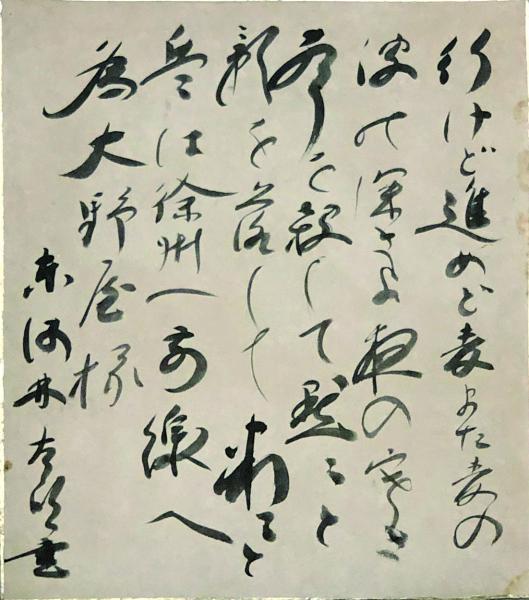 行けど進めど麦また麦の
波の深さよ夜の寒さ
声を殺して黙々と
影を落して粛々と
兵は徐州へ前線へ
為大野屋様
東海林太郎書